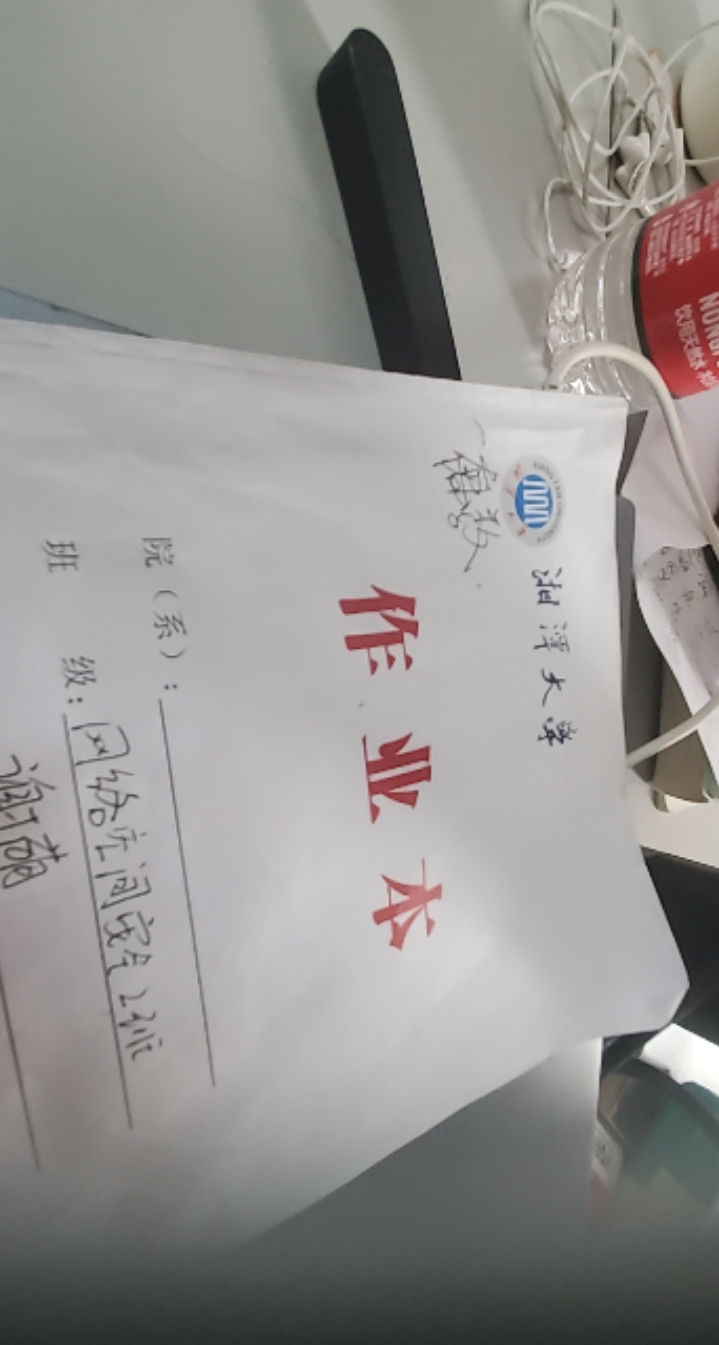 湘潭大学
离散
作业本
院（系）：
班 级：网络空间安全2班
谢萌
NONGF
饮用天然水